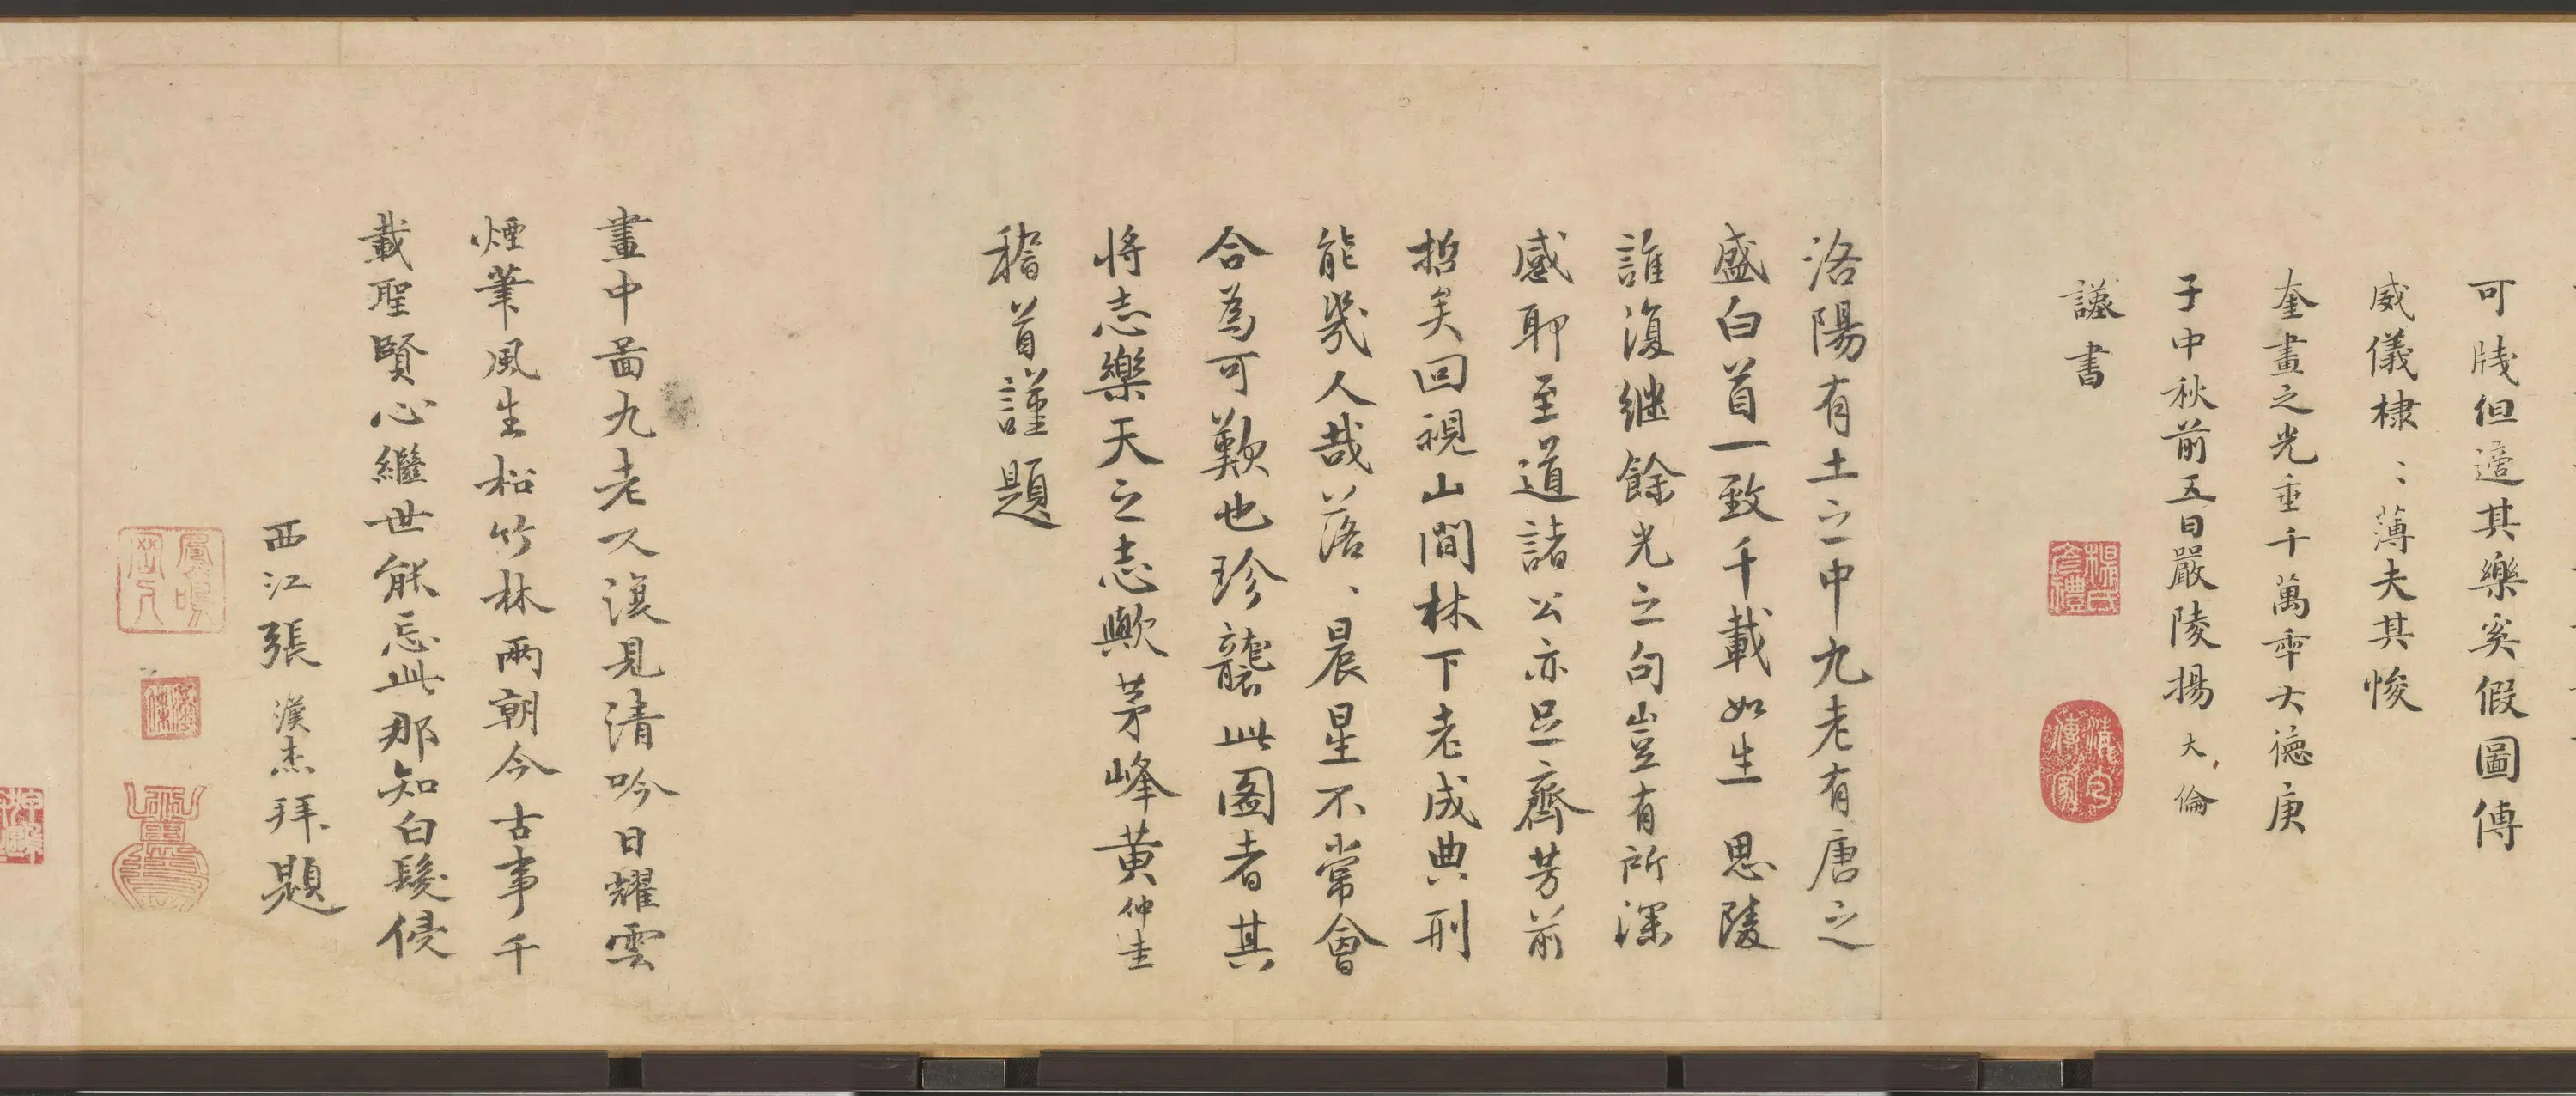 可牋但適其樂奚假圖傳
威儀棣〻薄夫其悛
奎畫之光垂千萬年大德庚
子中秋前五日嚴陵楊大倫
謹書
洛陽有土之中九老有唐之
盛白首一致千載如生思陵
誰復继餘光之句豈有所深
感耶至道諸公亦足齊芳前
哲矣回視山間林下老成典刑
能幾人哉落〻晨星不常會
合為可歎也珍襲此圖者其
將志樂天之志歟茅峰黄仲圭
稽首謹題
畫中畐九老又復見清吟日耀雲
煙筆風生松竹林兩朝今古事千
載聖賢心繼世能忘此那知白髮侵
西江張漢杰拜題
楊氏彥禮
漢杰